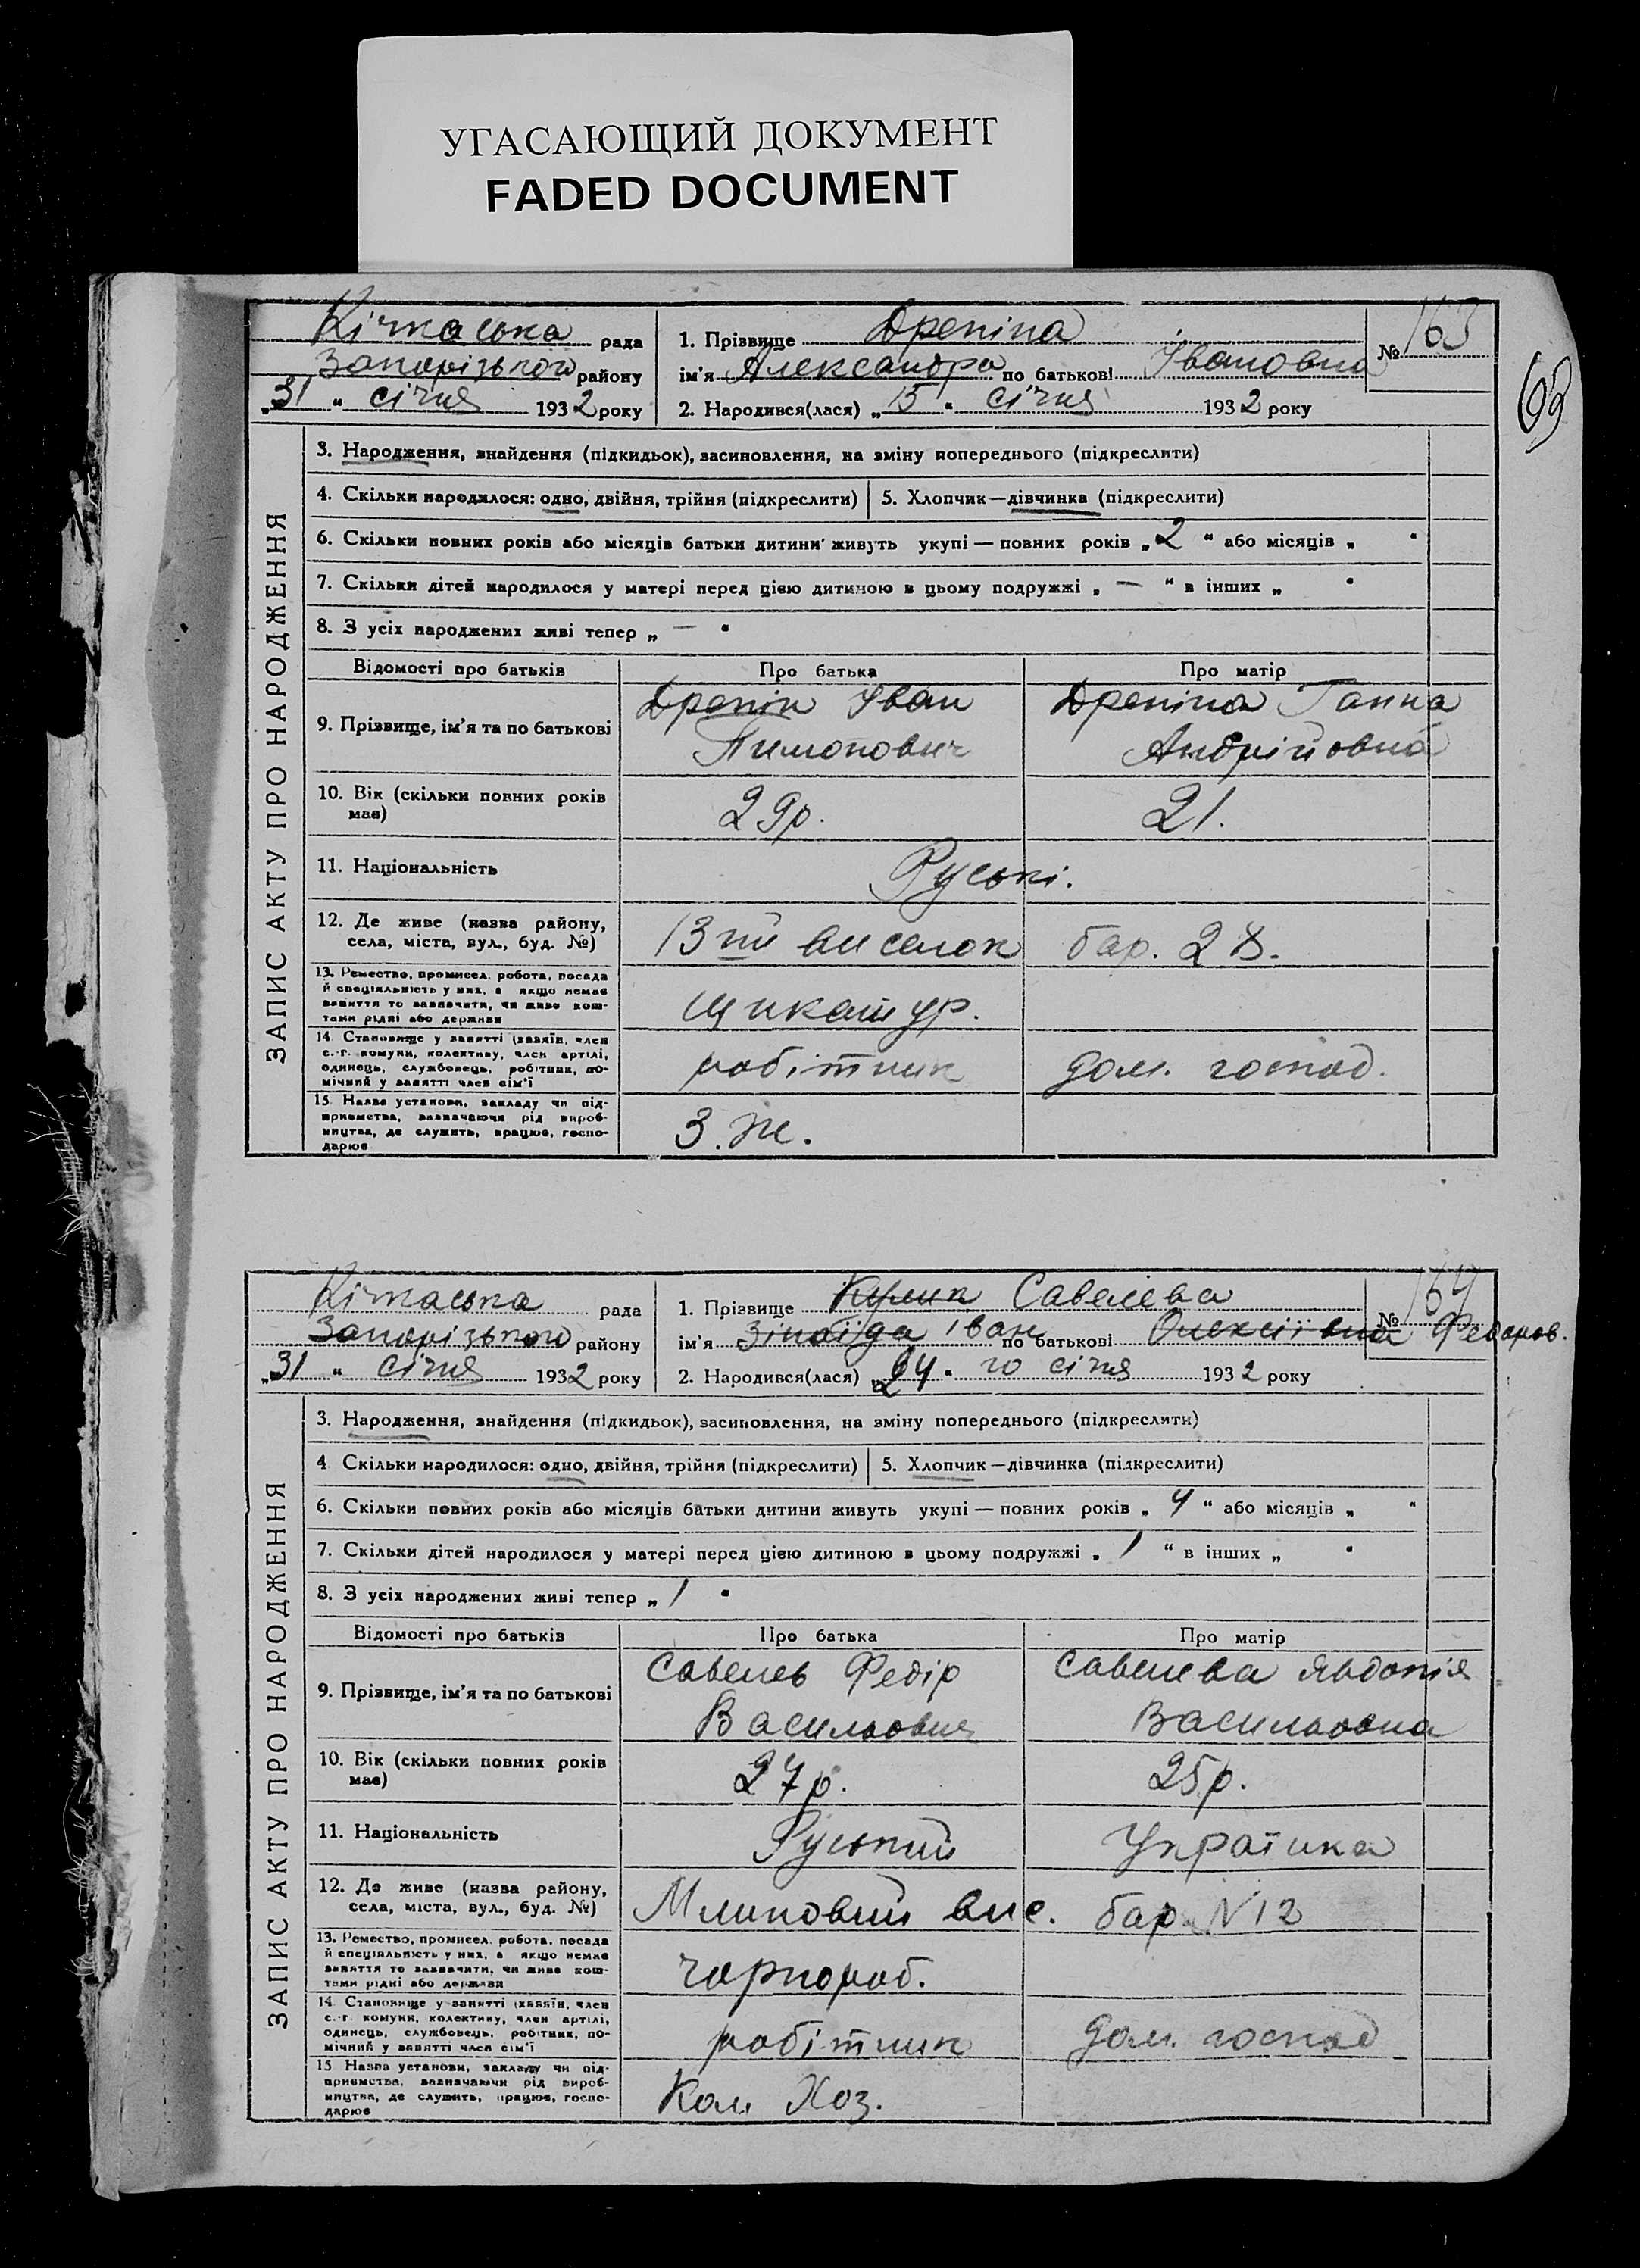 УГАСАЮЩИЙ ДОКУМЕНТ
FADED DOCUMENT
63
Кічкаська рада
Запорізького району
„31“ січня 1932 року
1. Прізвище Дреніна
ім'я Александра по батькові Івановна
№ 163
2. Народився(лася) „15“ січня 1932 року
ЗАПИС АКТУ ПРО НАРОДЖЕННЯ
3. Народження, знайдення (підкидьок), засиновлення, на зміну попереднього (підкреслити)
4. Скільки народилося: одно, двійня, трійня (підкреслити) 5. Хлопчик—дівчинка (підкреслити)
6. Скільки повних років або місяців батьки дитини живуть укупі — повних років „2“ або місяців „ “
7. Скільки дітей народилося у матері перед цією дитиною в цьому подружжі „—“ в інших „ “
8. З усіх народжених живі тепер „—“
Відомості про батьків Про батька Про матір
9. Прізвище, ім'я та по батькові Дренін Іван Дреніна Ганна
Андрійовна
10. Вік (скільки повних років 29р. 21.
має)
11. Національність Руські.
12. Де живе (назва району, 13ий виселок бар. 28.
села, міста, вул., буд. №)
13. Ремество, промисел, робота, посада
й спеціяльність у них, а якщо немає
заняття то зазначити, чи живе кош-
тами рідні або держави
щикатур.
14. Становище у занятті (хазяїн, член
с.-г. комуни, колективу, член артілі,
одинець, службовець, робітник, по-
мічний у занятті член сім'ї
робітник дом. господ.
15. Назва установи, закладу чи під-
приємства, зазначаючи рід вироб-
ництва, де служить, працює, госпо-
дарює
З. Ж.
Кічкаська рада
Запорізького району
„31“ січня 1932 року
1. Прізвище Кулик Савелєва
ім'я Зінаїда Іван по батькові Олексіївна Федоров.
№ 164
2. Народився(лася) „24“ го січня 1932 року
ЗАПИС АКТУ ПРО НАРОДЖЕННЯ
3. Народження, знайдення (підкидьок), засиновлення, на зміну попереднього (підкреслити)
4. Скільки народилося: одно, двійня, трійня (підкреслити) 5. Хлопчик—дівчинка (підкреслити)
6. Скільки повних років або місяців батьки дитини живуть укупі — повних років „4“ або місяців „ “
7. Скільки дітей народилося у матері перед цією дитиною в цьому подружжі „1“ в інших „ “
8. З усіх народжених живі тепер „1“
Відомості про батьків Про батька Про матір
9. Прізвище, ім'я та по батькові Савелєв Федір Савелєва Явдокія
Васильович Васильовна
10. Вік (скільки повних років 27р. 25р.
має)
11. Національність Руський Українка
12. Де живе (назва району, Млиновий вис. бар. N12
села, міста, вул., буд. №)
13. Ремество, промисел, робота, посада
й спеціяльність у них, а якщо немає
заняття то зазначити, чи живе кош-
тами рідні або держави
чорнороб.
14. Становище у занятті (хазяїн, член
с.-г. комуни, колективу, член артілі,
одинець, службовець, робітник, по-
мічний у занятті член сім'ї
робітник дом. господ
15. Назва установи, закладу чи під-
приємства, зазначаючи рід вироб-
ництва, де служить, працює, госпо-
дарює
Ком Хоз.